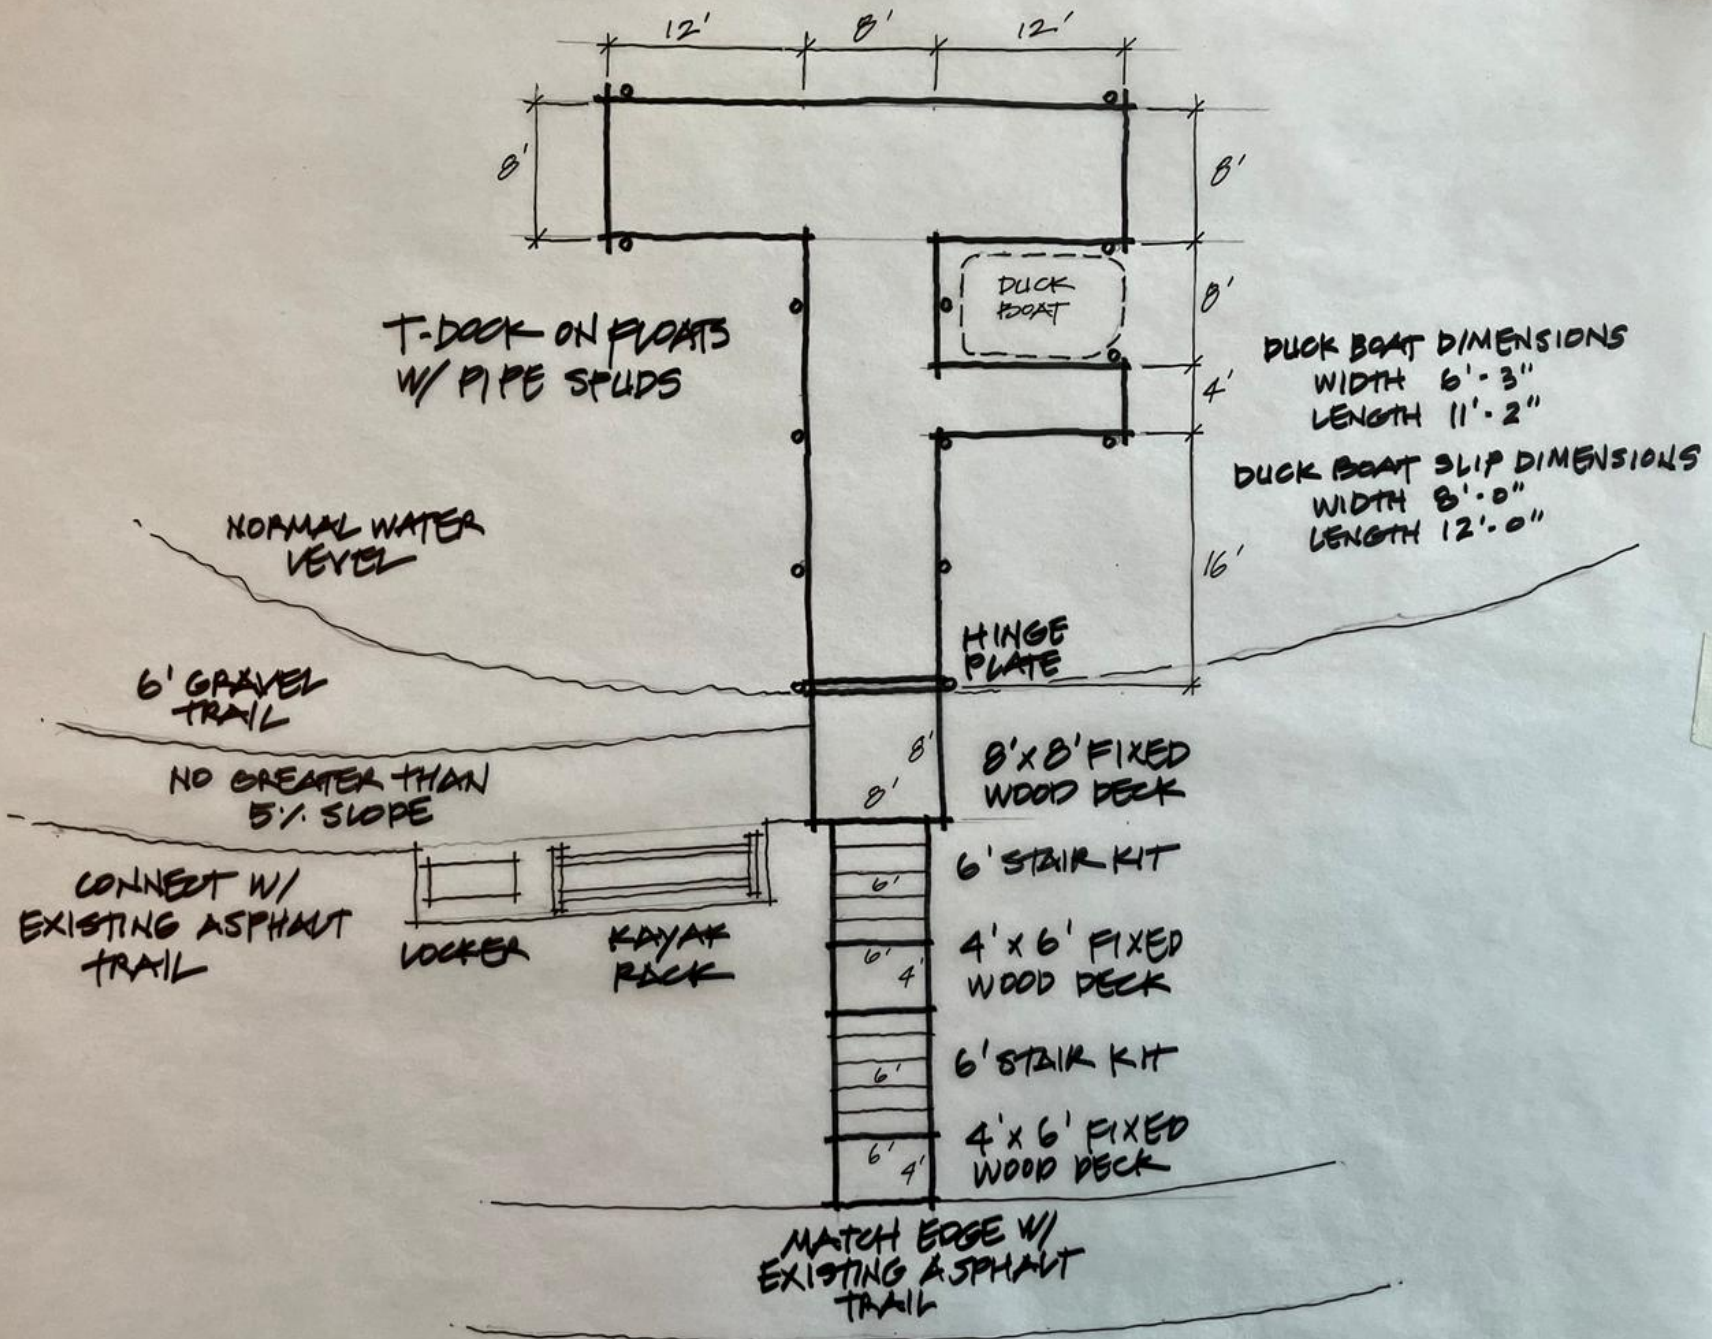 12' 8' 12'
8'
8'
DUCK
BOAT
8'
4'
16'
T-DOCK ON FLOATS
W/ PIPE SPUDS
DUCK BOAT DIMENSIONS
WIDTH 6'-3"
LENGTH 11'-2"
DUCK BOAT SLIP DIMENSIONS
WIDTH 8'-0"
LENGTH 12'-0"
NORMAL WATER
LEVEL
HINGE
PLATE
6' GRAVEL
TRAIL
NO GREATER THAN
5% SLOPE
8'
8'
8' x 8' FIXED
WOOD DECK
CONNECT W/
EXISTING ASPHALT
TRAIL
LOCKER
KAYAK
RACK
6'
6' STAIR KIT
6'
4'
4' x 6' FIXED
WOOD DECK
6'
6' STAIR KIT
6'
4'
4' x 6' FIXED
WOOD DECK
MATCH EDGE W/
EXISTING ASPHALT
TRAIL